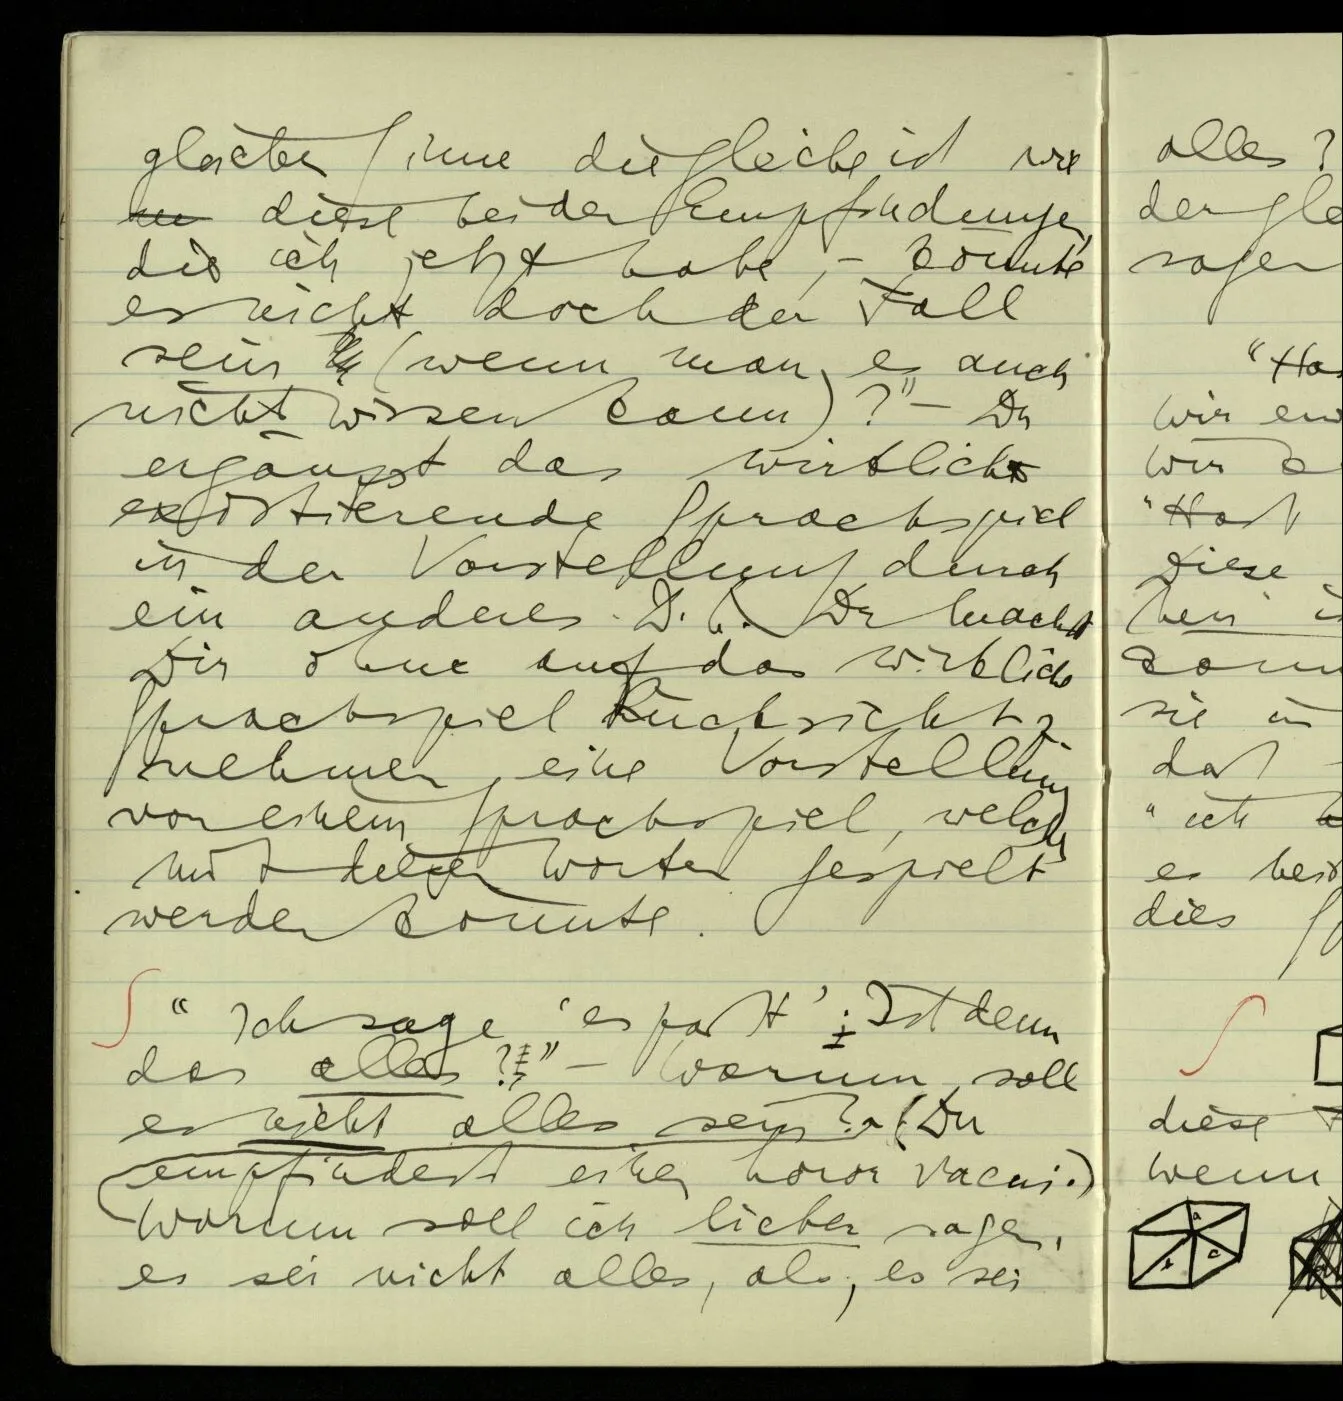 gleichen Sinne die gleiche ist wie
diese beiden Empfindungen,
die ich jetzt habe, – könnte
es nicht doch der Fall
sein (wenn man es auch
nicht wissen kann)?” – Du
ergänzst das wirklich
existierende Sprachspiel
in der Vorstellung durch
ein anderes. D.h. Du machst
Dir ohne auf das wirkliche
Sprachspiel Rücksicht z.
nehmen, eine Vorstellung
von einem Sprachspiel, welches
mit Worten gespielt
werden könnte.
∫ “Ich sage ‘es paßt’; Ist denn
das alles?!” – Warum soll
es nicht alles sein? (Du
empfindest einen horor vacui.)
Warum soll ich lieber sagen,
es sei nicht alles, als, es sei
alles?
der gle
sagen
“Has
wir
wir
“Hast
Diese
sie in
daß
“ich
es
dies
∫
diese
wenn
a
b
c